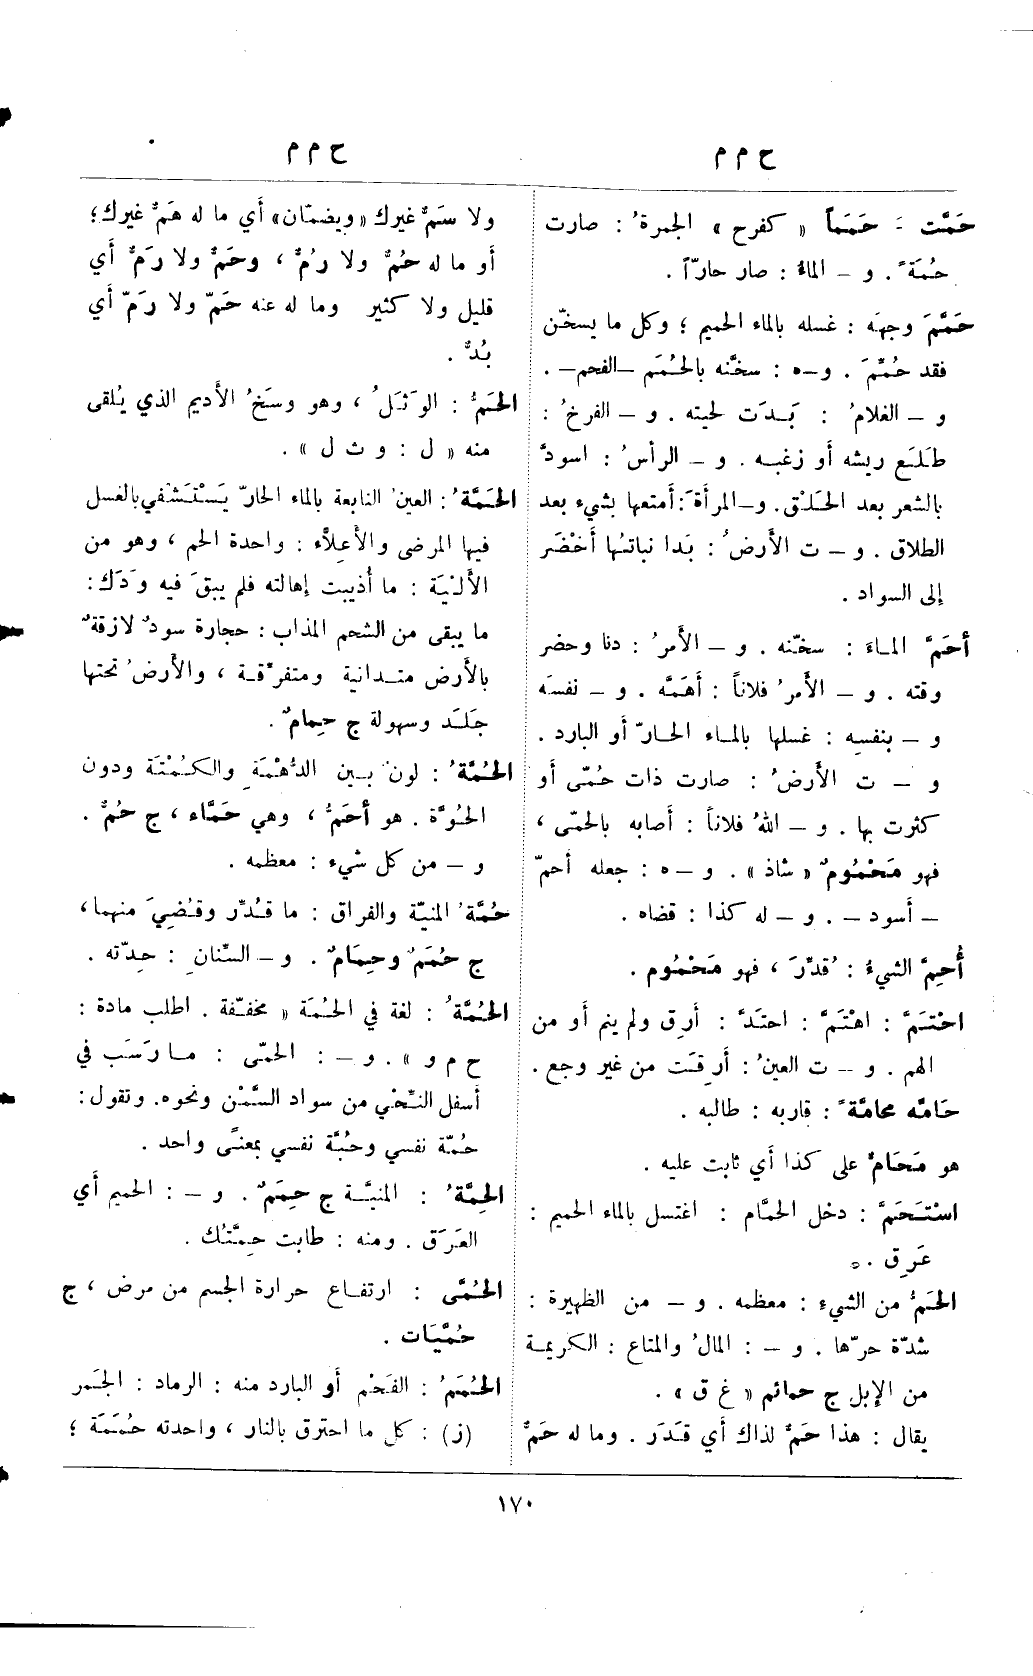 ح م م
ح م م
حَمَّت ـَ حَمَماً « كفرح » الجمرةُ : صارت
حُمَةً . و – الماءُ : صار حارّاً .
حَمَّمَ وجهَه : غسله بالماء الحميم ؛ وكل ما يسخّن
فقد حُمِّمَ . و–ه : سخَّنه بالحُمَم –الفحم– .
و – الغلامُ : بَدَت لحيته . و – الفرخُ :
طَلَع ريشه أو زغبه . و – الرأسُ : اسودَّ
بالشعر بعد الحَلْق. و–المرأةَ: أمتعها بشيء بعد
الطلاق . و – ت الأرضُ : بَدا نباتُها أخْضَر
إلى السواد .
أحَمَّ الماءَ : سخّنه . و – الأمرُ : دنا وحضر
وقته . و – الأمرُ فلاناً : أهَمَّه . و – نفسَه
و – بنفسِه : غسلها بالماء الحارّ أو البارد .
و – ت الأرضُ : صارت ذات حُمّى أو
كثرت بها . و – اللهُ فلاناً : أصابه بالحمّى ،
فهو مَحْمُومٌ « شاذ » . و –ه : جعله أحمّ
– أسود – . و – له كذا : قضاه .
أُحِمَّ الشيءُ : قُدِّرَ ، فهو مَحْمُوم .
احْتَمَّ : اهْتَمَّ : احتَدَّ : أرِق ولم ينم أو من
الهم . و – ت العينُ : أرِقَت من غير وجع .
حَامَّه محامَّةً : قاربه : طالبه .
هو مَحَامٌّ على كذا أي ثابت عليه .
اسْتَحَمَّ : دخل الحمَّام : اغتسل بالماء الحميم :
عَرِق .
الحَمُّ من الشيء : معظمه . و – من الظهيرة :
شدّة حرّها . و – : المالُ والمتاع : الكريمة
من الإبل ج حمائم « غ ق » .
يقال : هذا حَمٌّ لذاك أي قَدَر . وما له حَمٌّ
ولا سَمٌّ غيرك «ويضمّان» أي ما له هَمٌّ غيرك؛
أو ما له حُمٌّ ولا رُمٌّ ، وحَمٌّ ولا رَمٌّ أي
قليل ولا كثير وما له عنه حَمّ ولا رَمّ أي
بُدٌّ .
الحَمُّ : الوَثَلُ ، وهو وسَخُ الأديم الذي يُلقى
منه « ل : و ث ل » .
الحَمَّةُ : العين النابعة بالماء الحارّ يَسْتَشْفي بالغسل
فيها المرضى والأعِلاَّء : واحدة الحم ، وهو من
الأَلْيَة : ما أُذيبت إهالته فلم يبقَ فيه وَدَك :
ما يبقى من الشحم المذاب : حجارة سودٌ لازقةٌ
بالأرض متدانية ومتفرّقة ، والأرضُ تحتها
جَلَد وسهولة ج حِمامٌ .
الحُمَّةُ : لون بين الدُّهْمَةِ والكُمْتَة ودون
الحُوَّة . هو أحَمُّ ، وهي حَمَّاء ، ج حُمٌّ .
و – من كل شيء : معظمه .
حُمَّةُ المنيّة والفراق : ما قُدِّر وقُضِيَ منهما،
ج حُمَمٌ وحِمَامٌ . و – السِّنانِ : حِدّته .
الحُمَّةُ : لغة في الحُمَة « مخفّفة . اطلب مادة :
ح م و » . و – : الحمّى : ما رَسَب في
أسفل النِّحْي من سواد السَّمْن ونحوه. وتقول:
حُمّة نفسي وحُبَّة نفسي بمعنًى واحد .
الحِمَّةُ : المنيَّة ج حِمَمٌ . و – : الحميم أي
العَرَق . ومنه : طابت حِمَّتُك .
الحُمَّى : ارتفاع حرارة الجسم من مرض ، ج
حُمَّيَات .
الحُمَمُ : الفَحْم أو البارد منه : الرماد : الجَمر
(ز) : كل ما احترق بالنار ، واحدته حُمَمَة ؛
١٧٠